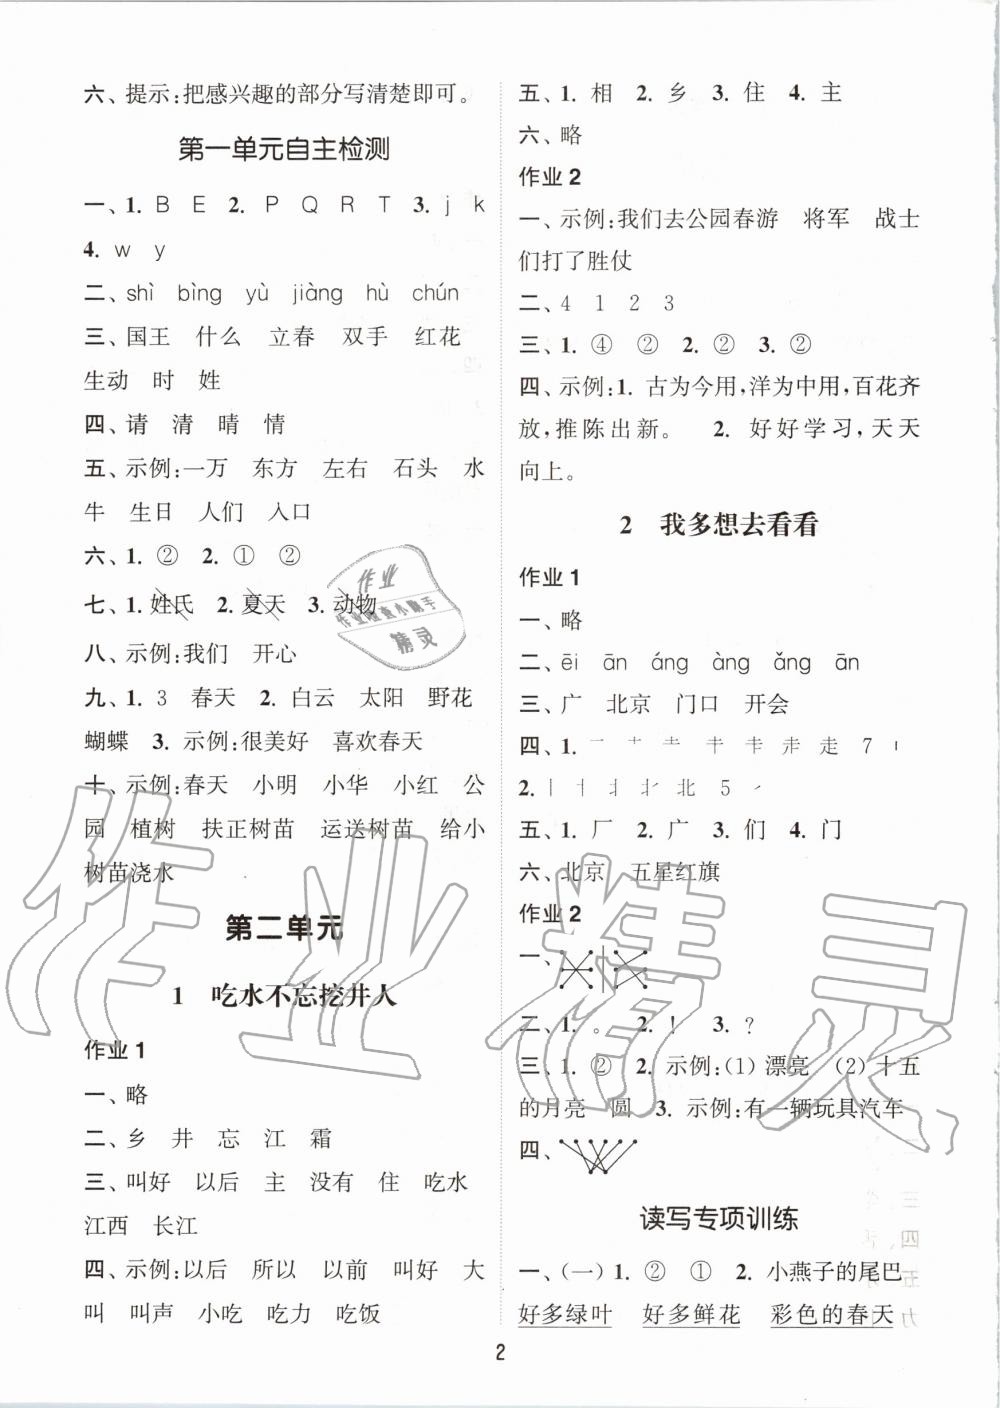 六、提示:把感兴趣的部分写清楚即可。
第一单元自主检测
一、1. B E 2. P Q R T 3. j k
4. w y
二、shì bìng yù jiàng hù chún
三、国王 什么 立春 双手 红花
生动 时 姓
四、请 清 晴 情
五、示例:一万 东方 左右 石头 水
牛 生日 人们 入口
六、1. ② 2. ① ②
七、1. 姓氏 2. 夏天 3. 动物
八、示例:我们 开心
九、1. 3 春天 2. 白云 太阳 野花
蝴蝶 3. 示例:很美好 喜欢春天
十、示例:春天 小明 小华 小红 公
园 植树 扶正树苗 运送树苗 给小
树苗浇水
第二单元
1 吃水不忘挖井人
作业 1
一、略
二、乡 井 忘 江 霜
三、叫好 以后 主 没有 住 吃水
江西 长江
四、示例:以后 所以 以前 叫好 大
叫 叫声 小吃 吃力 吃饭
五、1. 相 2. 乡 3. 住 4. 主
六、略
作业 2
一、示例:我们去公园春游 将军 战士
们打了胜仗
二、4 1 2 3
三、1. ④ ② 2. ② 3. ②
四、示例:1. 古为今用,洋为中用,百花齐
放,推陈出新。 2. 好好学习,天天
向上。
2 我多想去看看
作业 1
一、略
二、ēi ān áng àng ǎng ān
三、广 北京 门口 开会
四、1. 走 7
2. 北 5
五、1. 厂 2. 广 3. 们 4. 门
六、北京 五星红旗
作业 2
一、
二、1. 。 2. ! 3. ?
三、1. ② 2. 示例:(1)漂亮 (2)十五
的月亮 圆 3. 示例:有一辆玩具汽车
四、
读写专项训练
一、(一)1. ② ① 2. 小燕子的尾巴
好多绿叶 好多鲜花 彩色的春天
2
作业
作业检查小助手
精灵
作业精灵